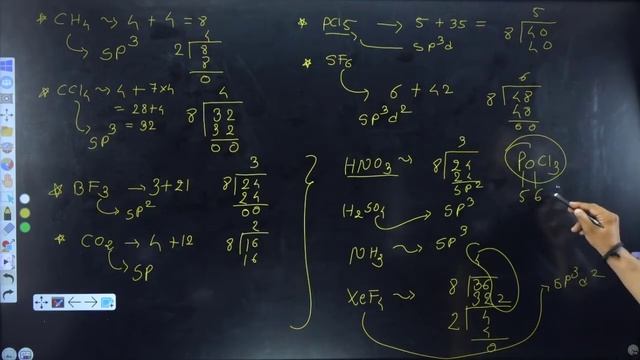 * CH4 → 4 + 4 = 8
SP3
4
2 8
8
0
* CCl4 → 4 + 7×4
= 28+4
= 32
SP3
4
8 32
32
00
* BF3 → 3+21
SP2
3
8 24
24
00
* CO2 → 4 + 12
SP
2
8 16
16
* PCl5 → 5 + 35 =
SP3d
5
8 40
40
* SF6
6 + 42
SP3d2
6
8 48
48
00
HNO3
3
8 24
24
SP2
H2SO4
SP3
NH3
SP3
XeF4
4
8 36
32 2
2 4
4
0
SP3d2
POCl3
5 6